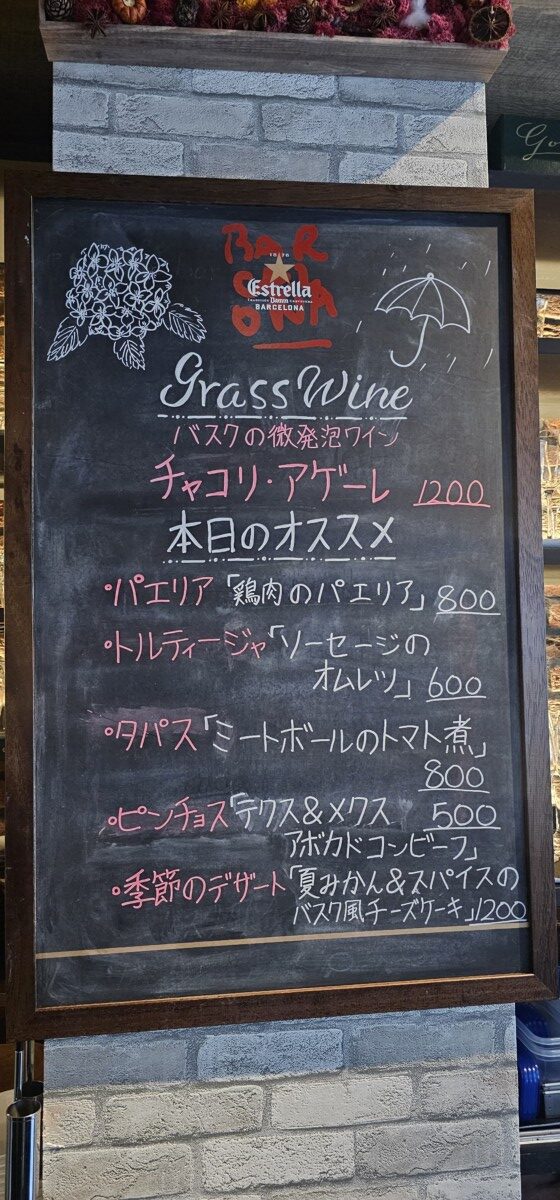 Go
BAR
1876
CELONA
Estrella
Damm
BARCELONA
Grass Wine
バスクの微発泡ワイン
チャコリ・アゲーレ 1200
本日のオススメ
・パエリア「鶏肉のパエリア」800
・トルティージャ「ソーセージの
オムレツ」 600
・タパス「ミートボールのトマト煮」
800
・ピンチョス「テクス&メクス 500
アボカドコンビーフ」
・季節のデザート「夏みかん&スパイスの
バスク風チーズケーキ」1200